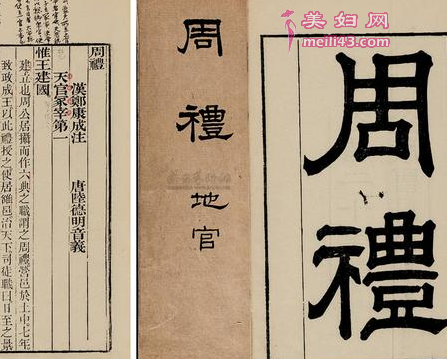 美妇网
meili43.com
周禮
周禮 地官
周禮
漢鄭康成注 唐陸德明音義
天官冢宰第一
惟王建國
建立也周公居攝而作六典之職謂之周禮營邑於土中七年
致政成王以此禮授之使居雒邑治天下司徒職曰日至之景